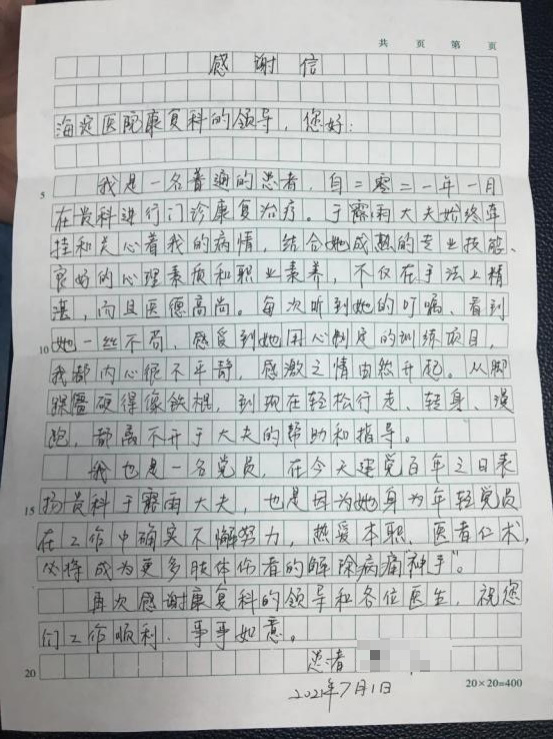 共 页 第 页
感谢信
海淀医院康复科的领导，您好：
5 我是一名普通的患者，自二零二一年一月
在贵科进行门诊康复治疗。于霏雨大夫始终牵
挂和关心着我的病情，结合她成熟的专业技能、
良好的心理素质和职业素养，不仅在手法上精
湛，而且医德高尚。每次听到她的叮嘱、看到
10 她一丝不苟，感受到她用心制定的训练项目，
我都内心很不平静，感激之情由然升起。从脚
踝僵硬得像铁棍，到现在轻松行走、转身、慢
跑，都离不开于大夫的帮助和指导。
我也是一名党员，在今天建党百年之日表
15 扬贵科于霏雨大夫，也是因为她身为年轻党员
在工作中确实不懈努力，热爱本职、医者仁术，
必将成为更多肢体伤者的解除病痛"神手"。
再次感谢康复科的领导和各位医生，祝您
们工作顺利、事事如意。
20 患者
2021年7月1日
20×20=400